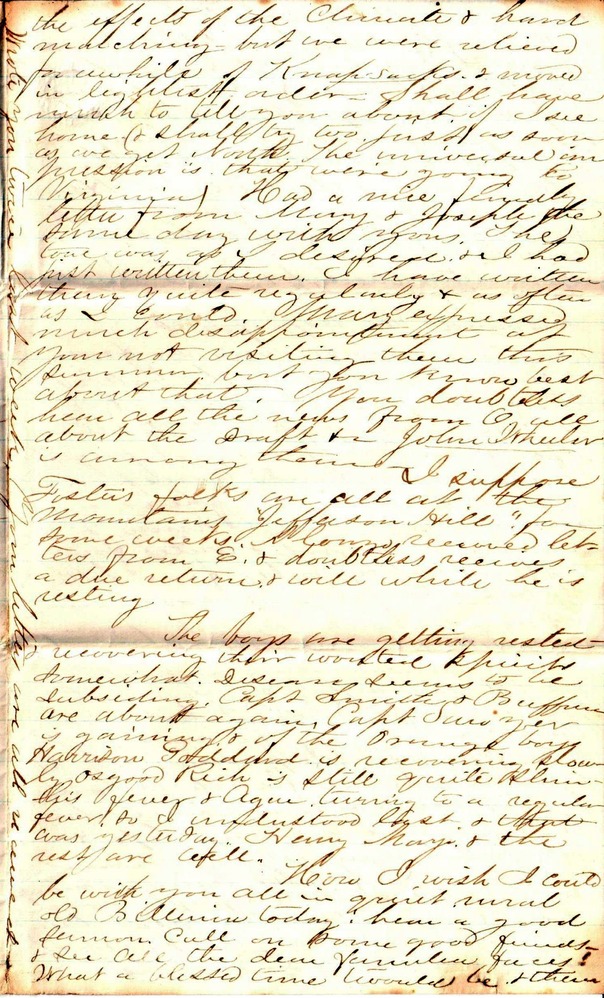 the effects of the Climate & hard
marching - but we were relieved
for awhile of Knap-sacks & moved
in lightest order - Shall have
much to tell you about if I see
home (& shall try too just as soon
as we get North. The universal im
pression is that were going to
Virginia) Had a nice friendly
letter from Mary & Joseph the
same day with yours. The
tone was as I desired & I had
just written them. I have written
them quite regularly & as often
as I could. Mary expressed
much disappointment at
your not visiting them this
summer but you know best
about that. You doubtless
hear all the news from
about the draft & John Wheeler
is among them - I suppose
Foster's folks are all at the
mountains "Jefferson Hill" for
some weeks. received let-
ters from E. & doubtless receives
a due return & will while he is
resting
The boys are getting rested -
recovering their wonted spirits
somewhat. Disease seems to be
subsiding. Capt Smith & Buffum
are about again, Capt Sawyer
is gaining & of the Orange boys
Harrison Goddard is recovering slow
ly Osgood Rich is still quite slim -
his fever & Ague turning to a regular
fever so I understood last & that
was yesterday. Henry Mayo & the
rest are well.
How I wish I could
be with you all in quiet rural
old today: hear a good
sermon, Call on some good friends -
& see all the dear familiar faces!
What a blessed time twould be & then
Write you twice each week, Your letters are all received